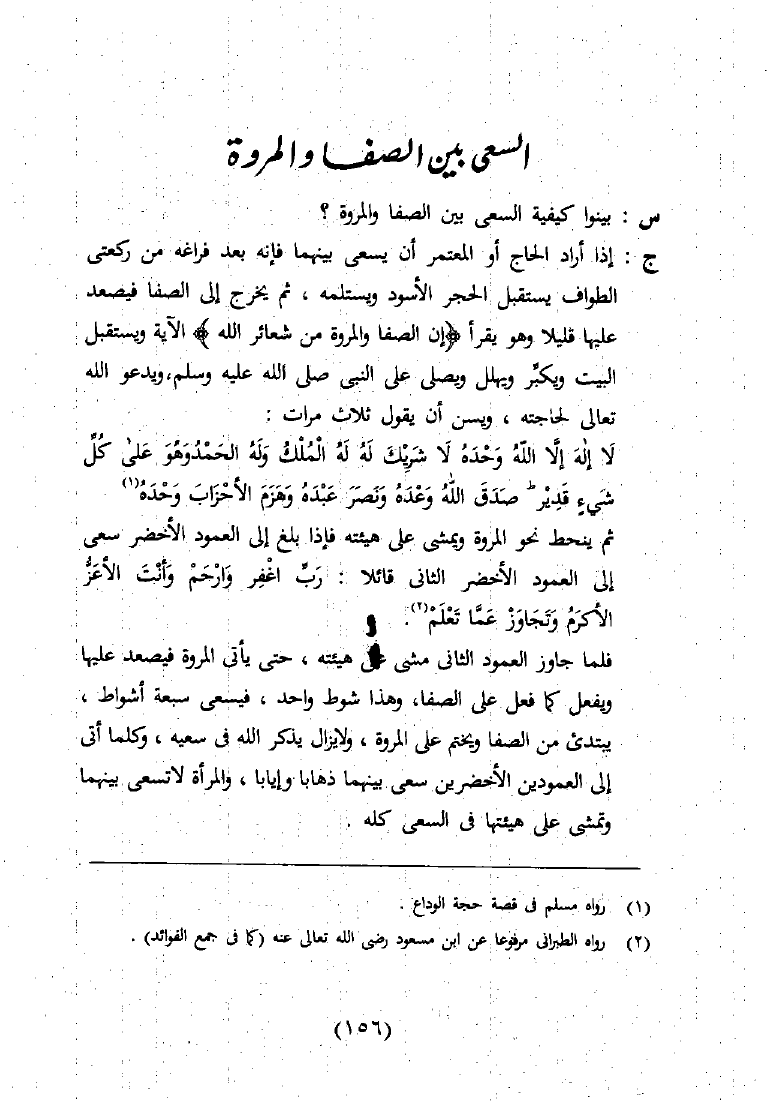 السعى بين الصفا والمروة
س : بينوا كيفية السعى بين الصفا والمروة ؟
ج : إذا أراد الحاج أو المعتمر أن يسعى بينهما فإنه بعد فراغه من ركعتى
الطواف يستقبل الحجر الأسود ويستلمه ، ثم يخرج إلى الصفا فيصعد
عليها قليلا وهو يقرأ ﴿إن الصفا والمروة من شعائر الله﴾ الآية ويستقبل
البيت ويكبِّر ويهلل ويصلى على النبى صلى الله عليه وسلم،ويدعو الله
تعالى لحاجته ، ويسن أن يقول ثلاث مرات :
لَا إِلٰهَ إِلَّا اللّٰهُ وَحْدَهُ لَا شَرِيْكَ لَهُ لَهُ الْمُلْكُ وَلَهُ الحَمْدُوَهُوَ عَلىٰ كُلِّ
شَيءٍ قَدِيْر صَدَقَ اللّٰهُ وَعْدَهُ وَنَصَرَ عَبْدَهُ وَهَزَمَ الأحْزَابَ وَحْدَهُ(١)
ثم ينحط نحو المروة ويمشى على هيئته فإذا بلغ إلى العمود الأخضر سعى
إلى العمود الأخضر الثانى قائلا : رَبِّ اغْفِر وَارْحَمْ وَأَنْتَ الأعَزُّ
الأكرَمُ وَتَجَاوَزْ عَمَّا تَعْلَمْ(٢).
فلما جاوز العمود الثانى مشى على هيئته ، حتى يأتى المروة فيصعد عليها
ويفعل كما فعل على الصفا، وهذا شوط واحد ، فيسعى سبعة أشواط ،
يبتدئ من الصفا ويختم على المروة ، ولايزال يذكر الله فى سعيه ، وكلما أتى
إلى العمودين الأخضرين سعى بينهما ذهابا وإيابا ، والمرأة لاتسعى بينهما
وتمشى على هيئتها فى السعى كله .
(١) رواه مسلم فى قصة حجة الوداع .
(٢) رواه الطبرانى مرفوعا عن ابن مسعود رضى الله تعالى عنه (كما فى جمع الفوائد) .
(١٥٦)